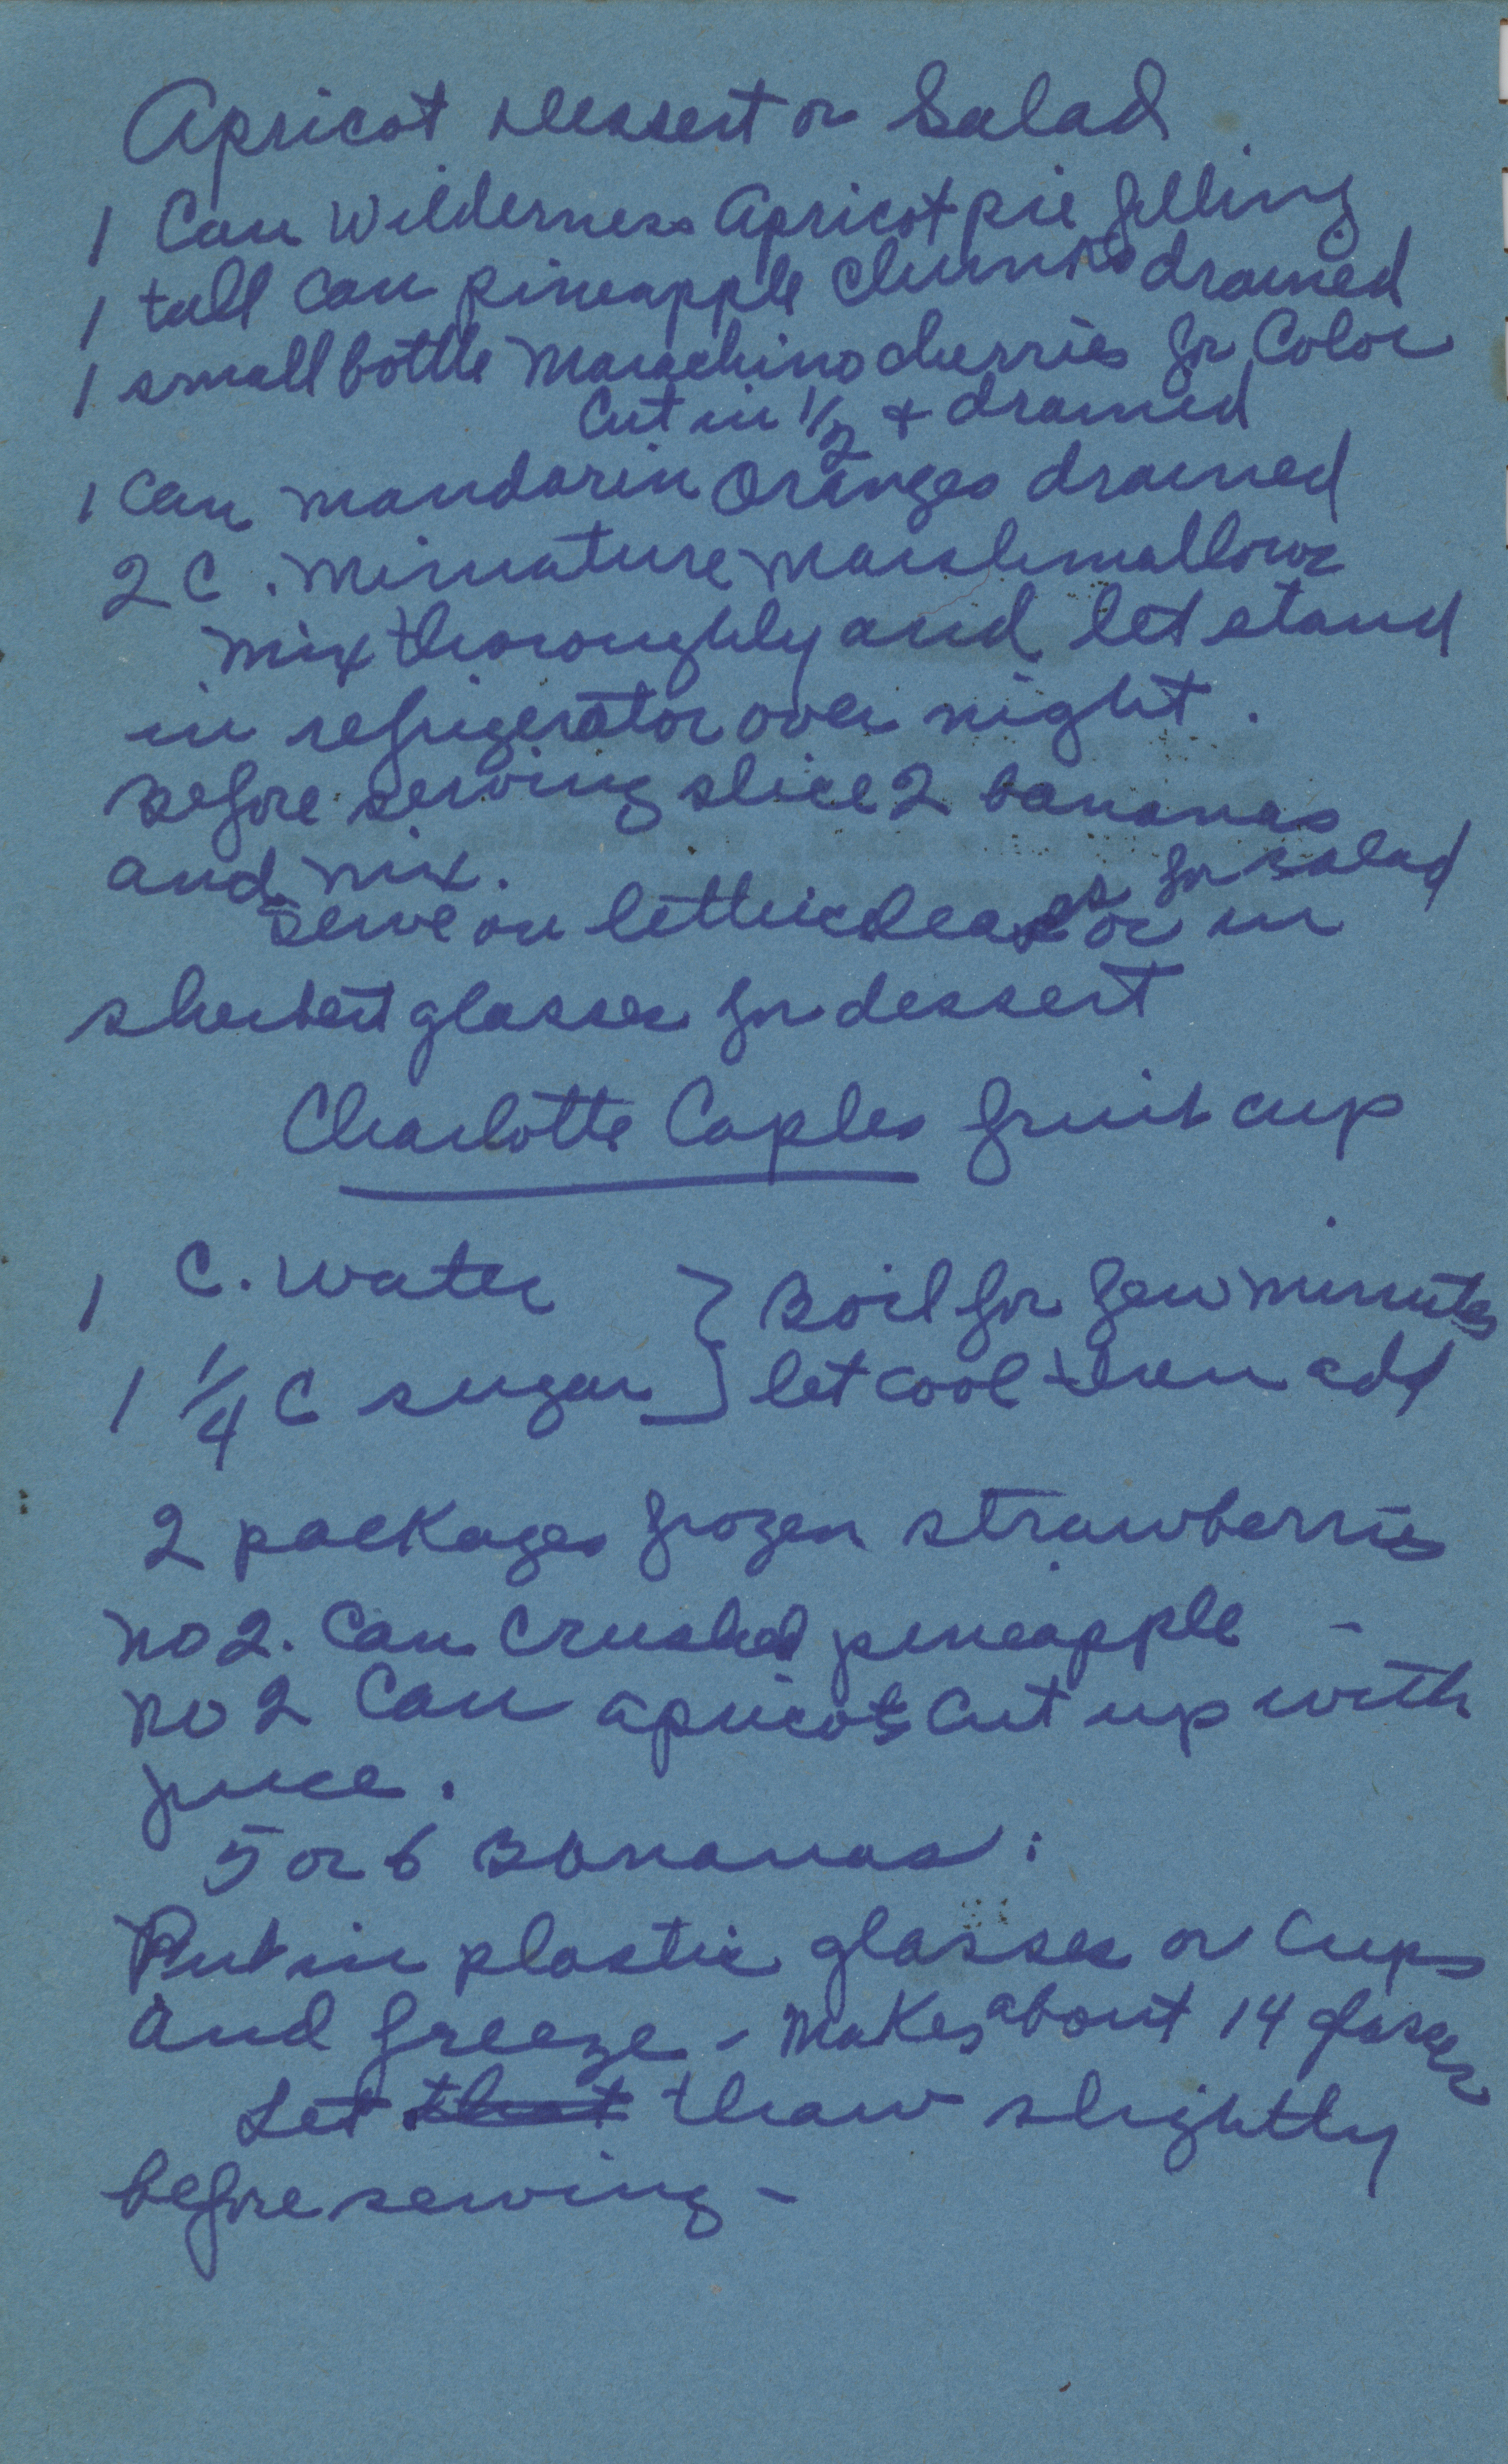 Apricot Dessert or Salad
1 Can Wilderness Apricot pie filling
1 tall can pineapple chunks drained
1 small bottle Marachino cherries for Color
Cut in 1/2 & drained
1 can mandarin Oranges drained
2 C. Minuature Marshmallows
mix thoroughly and let stand
in refrigerator over night.
Before serving slice 2 bananas
and mix.
Serve on lettuce leaves for salad
or in
sherbert glasses for dessert
Charlotte Caples fruit cup
1 C. Water } Boil for few minutes
1 1/4 C sugar } let cool then add
2 packages frozen strawberries
No 2. Can Crushed pineapple -
No 2 Can apricots Cut up with
juice.
5 or 6 Bananas.
Put in plastic glasses or Cups
and freeze - Makes about 14 glasses
Let that thaw slightly
before serving -